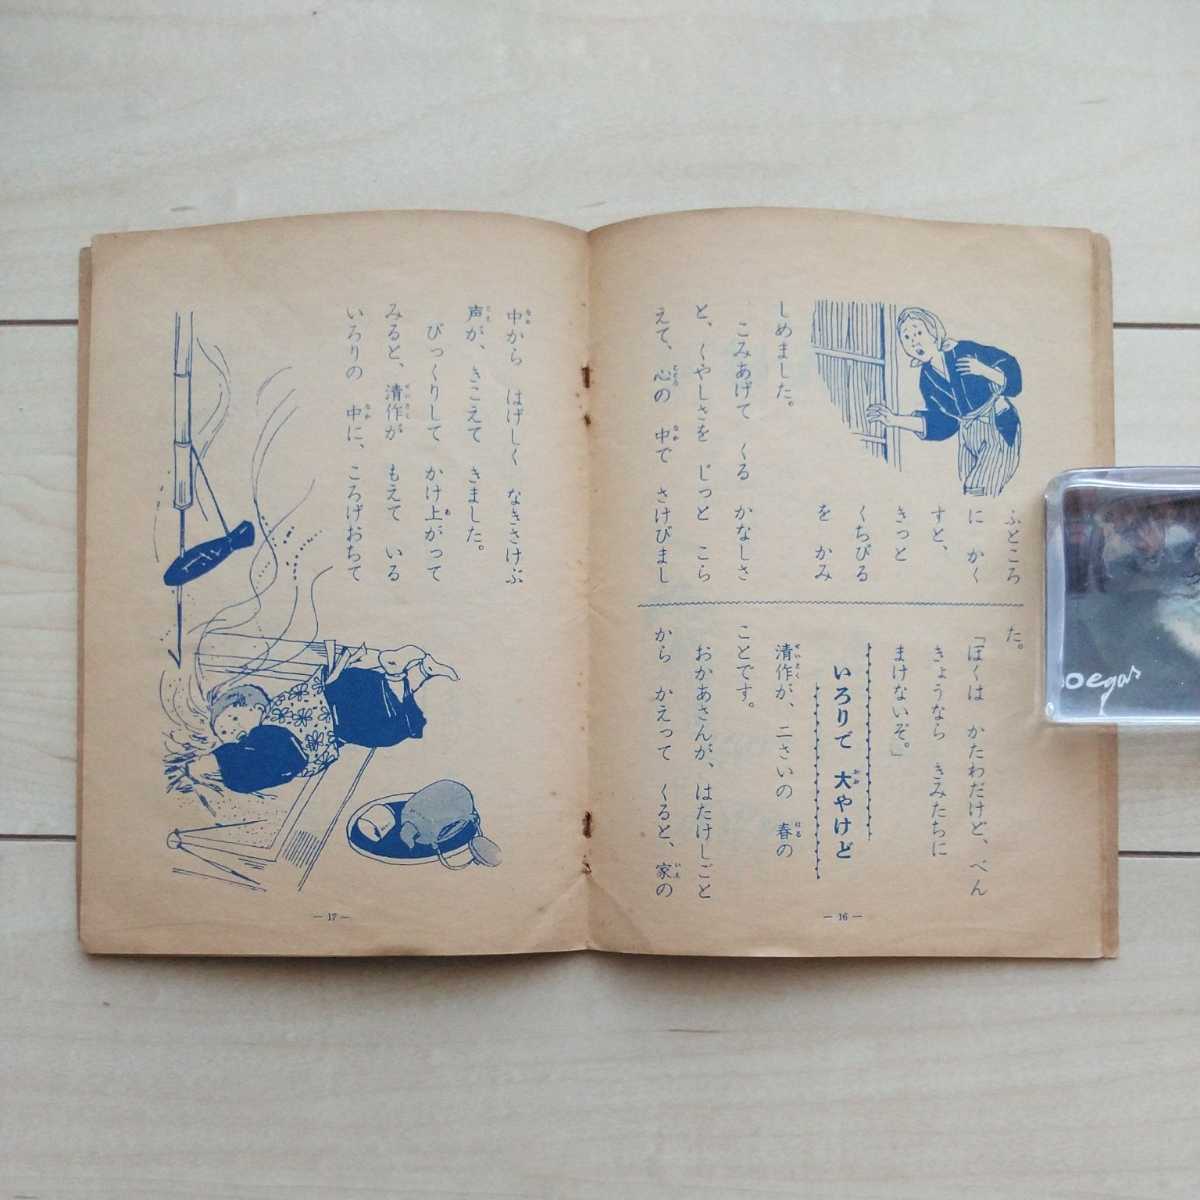 ふところ
に かく
すと、
きっと
くちびる
を かみ
しめました。
こみあげて くる かなしさ
と、くやしさを じっと こら
えて、心の 中で さけびまし
た。
「ぼくは かたわだけど、べん
きょうなら きみたちに
まけないぞ。」
いろりで 大やけど
清作が、二さいの 春の
ことです。
おかあさんが、はたけしごと
から かえって くると、家の
— 16 —
中から はげしく なきさけぶ
声が、きこえて きました。
びっくりして かけ上がって
みると、清作が もえて いる
いろりの 中に、ころげおちて
— 17 —
Degas